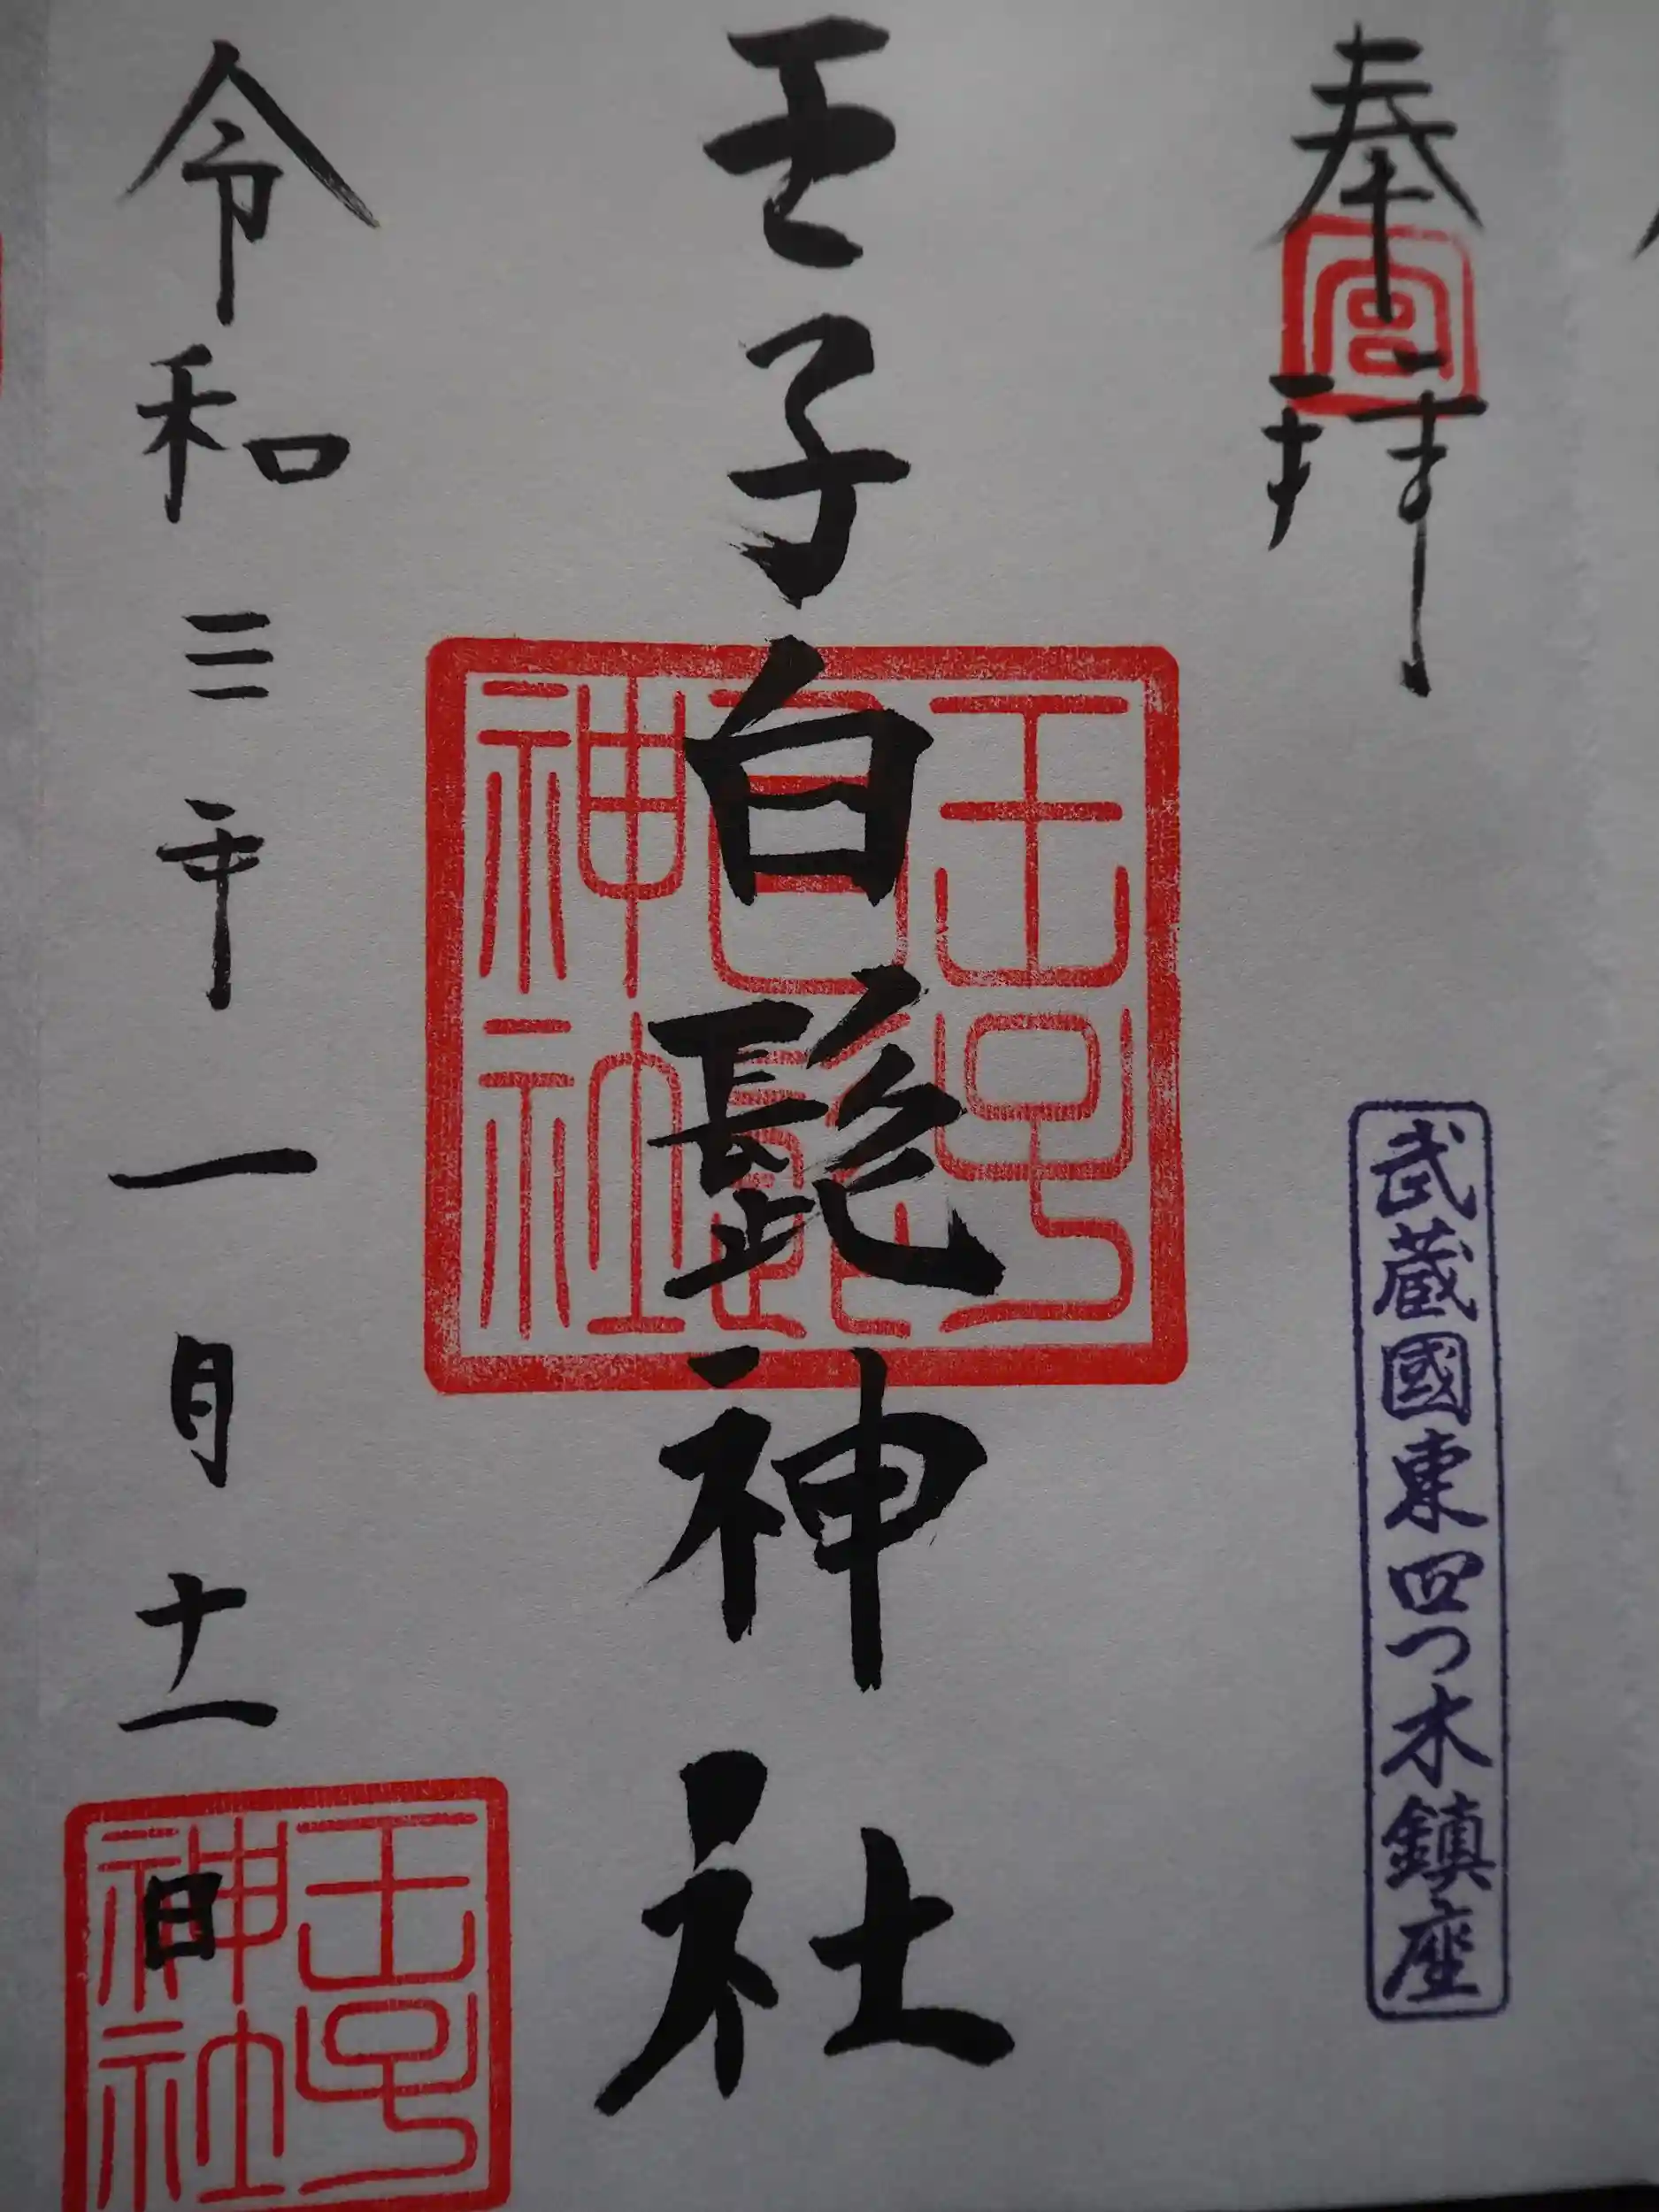 奉拝
宮
武蔵國東四つ木鎮座
王子白髭神社
王子
白髭
神社
令和三年一月十一日
王子
神社